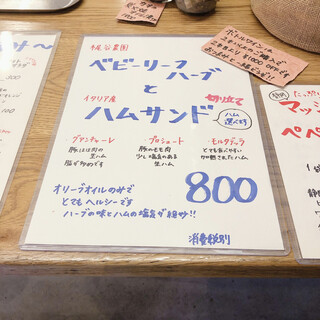 梶谷農園
ベビーリーフ
ハーブ
と
イタリア産
切り立て
ハムサンド
ハム
選べます
グアンチャーレ
豚ほほ肉の
生ハム
脂が多めです
・プロシュート
豚のもも肉
少し塩気のある
生ハム
・モルタデッラ
とても食べやすい
加熱されたハム
オリーブオイルのみで
とてもヘルシーです
ハーブの味とハムの塩気が絶妙!!
800
消費税別
ボトルワインは
¥1000 OFFです
たっぷり
マッシ
ペペ